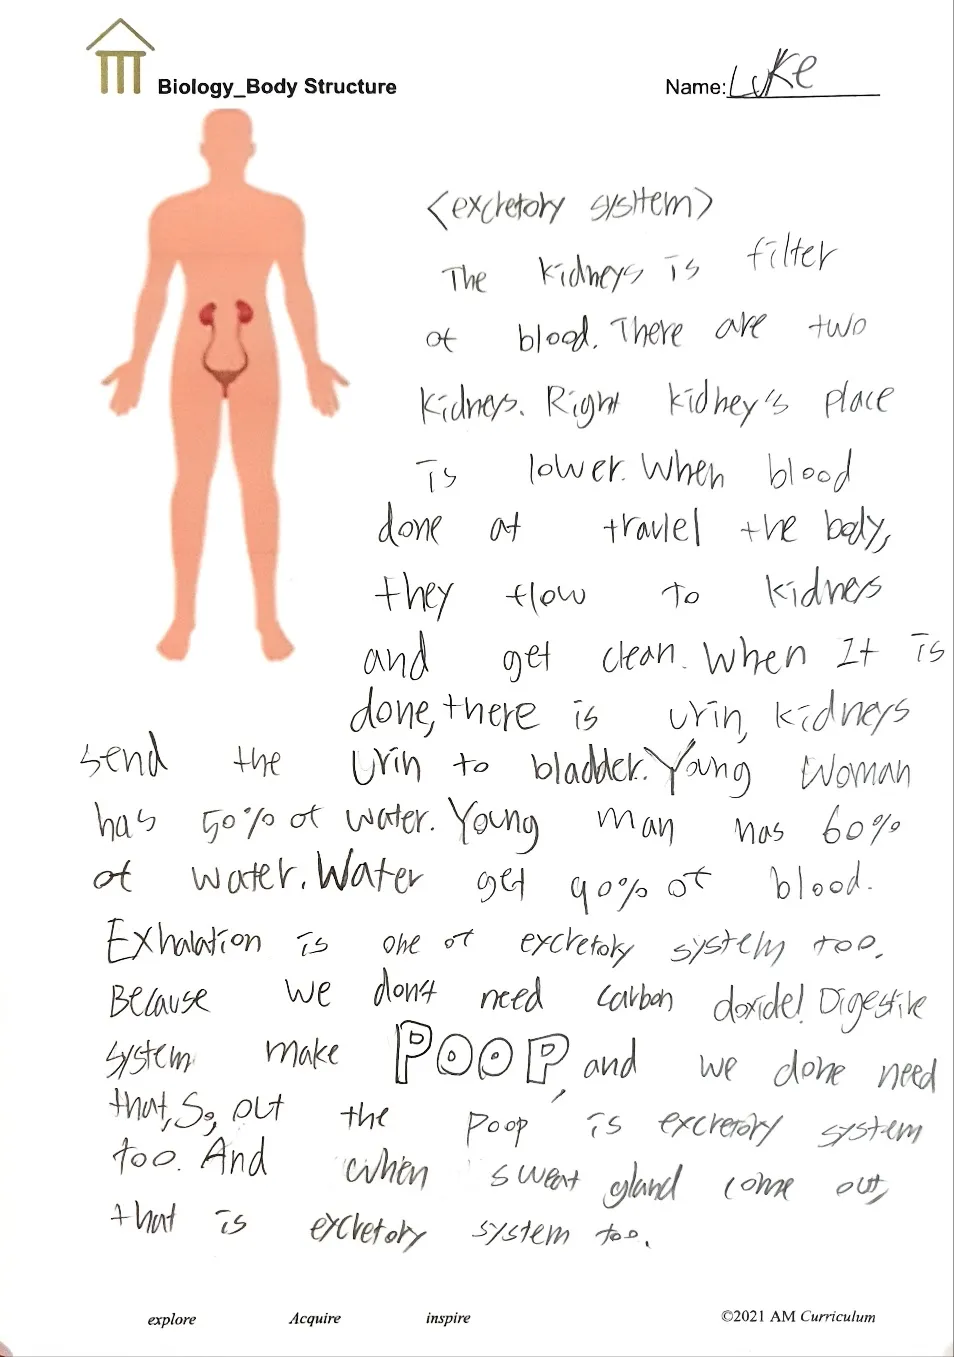 Biology_Body Structure
Name: Luke
<excretory system>
The kidneys is filter
of blood. There are two
kidneys. Right kidney's place
is lower. When blood
done at travlel the body,
they flow to kidneys
and get clean. When It is
done, there is urin, kidneys
send the urin to bladder. Young woman
has 50% of water. Young man has 60%
of water. Water get 90% of blood.
Exhalation is one of excretory system too.
Because we dont need carbon doxide! Digestive
system make POOP, and we done need
that, So, out the poop is excretory system
too. And when sweat gland come out,
that is excretory system too.
explore Acquire inspire ©2021 AM Curriculum